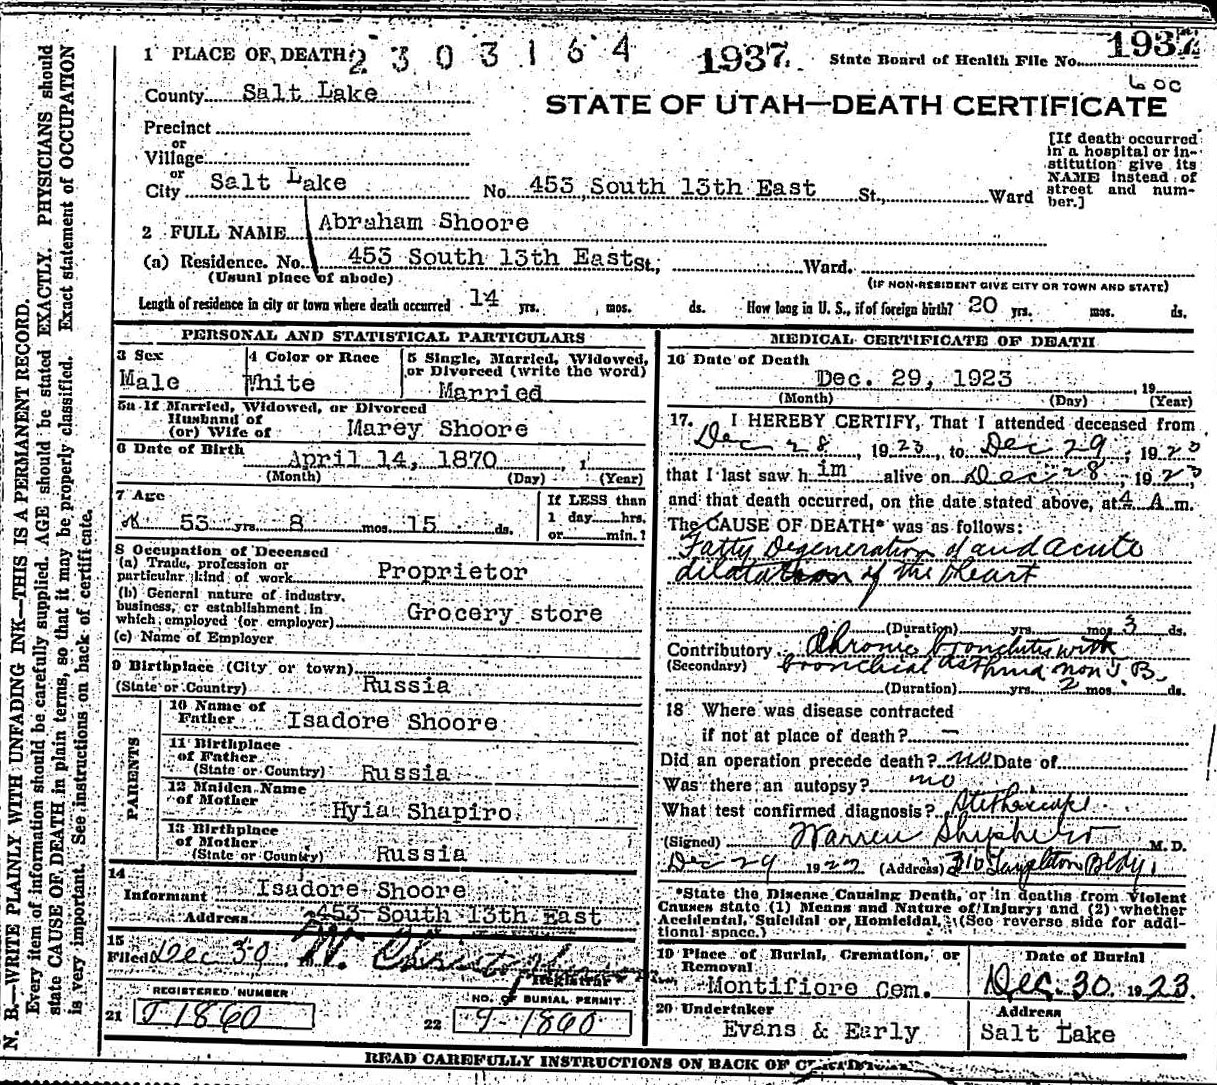 1 PLACE OF DEATH 2303164 1937 State Board of Health File No. 1937
County Salt Lake
600
STATE OF UTAH—DEATH CERTIFICATE
Precinct
or
Village
or
City Salt Lake No. 453 South 13th East St., Ward
[If death occurred in a hospital or institution give its NAME instead of street and number.]
2 FULL NAME Abraham Shoore
(a) Residence. No. 453 South 13th East St., Ward.
(Usual place of abode) (IF NON-RESIDENT GIVE CITY OR TOWN AND STATE)
Length of residence in city or town where death occurred 14 yrs. mos. ds. How long in U. S., if of foreign birth? 20 yrs. mos. ds.
PERSONAL AND STATISTICAL PARTICULARS
3 Sex
Male
4 Color or Race
White
5 Single, Married, Widowed, or Divorced (write the word)
Married
5a If Married, Widowed, or Divorced
Husband of
(or) Wife of Marey Shoore
6 Date of Birth April 14, 1870 , 1
(Month) (Day) (Year)
7 Age
53 yrs. 8 mos. 15 ds.
If LESS than
1 day hrs.
or min.?
8 Occupation of Deceased
(a) Trade, profession or
particular kind of work Proprietor
(b) General nature of industry,
business, or establishment in
which employed (or employer) Grocery store
(c) Name of Employer
9 Birthplace (City or town)
(State or Country) Russia
PARENTS
10 Name of
Father Isadore Shoore
11 Birthplace
of Father
(State or Country) Russia
12 Maiden Name
of Mother Hyia Shapiro
13 Birthplace
of Mother
(State or Country) Russia
14
Informant Isadore Shoore
Address 453 South 13th East
15
Filed Dec 30 W. Christopherson
Registrar
REGISTERED NUMBER
21 J 1860
NO. OF BURIAL PERMIT
22 J-1860
MEDICAL CERTIFICATE OF DEATH
16 Date of Death
Dec. 29, 1923 , 19
(Month) (Day) (Year)
17. I HEREBY CERTIFY, That I attended deceased from
Dec 28, 1923, to Dec 29, 1923
that I last saw him alive on Dec 28, 1923,
and that death occurred, on the date stated above, at 4 A m.
The CAUSE OF DEATH* was as follows:
Fatty Degeneration of and acute
dilatation of the heart
(Duration) yrs. mos. 3 ds.
Contributory Chronic bronchitis with
(Secondary) bronchical asthma non T.B.
(Duration) yrs. 2 mos. ds.
18 Where was disease contracted
if not at place of death? —
Did an operation precede death? no Date of
Was there an autopsy? no
What test confirmed diagnosis? Stethescope
(Signed) Warren M.D.
Dec 29 1923 (Address) Bldg.
*State the Disease Causing Death, or in deaths from Violent
Causes state (1) Means and Nature of Injury; and (2) whether
Accidental, Suicidal or Homicidal. (See reverse side for addi-
tional space.)
19 Place of Burial, Cremation, or
Removal
Montifiore Cem.
Date of Burial
Dec. 30. 1923.
20 Undertaker
Evans & Early
Address
Salt Lake
READ CAREFULLY INSTRUCTIONS ON BACK OF CERTIFICATE
N. B.—WRITE PLAINLY WITH UNFADING INK—THIS IS A PERMANENT RECORD.
Every item of information should be carefully supplied. AGE should be stated EXACTLY. PHYSICIANS should
state CAUSE OF DEATH in plain terms, so that it may be properly classified. Exact statement of OCCUPATION
is very important. See instructions on back of certificate.